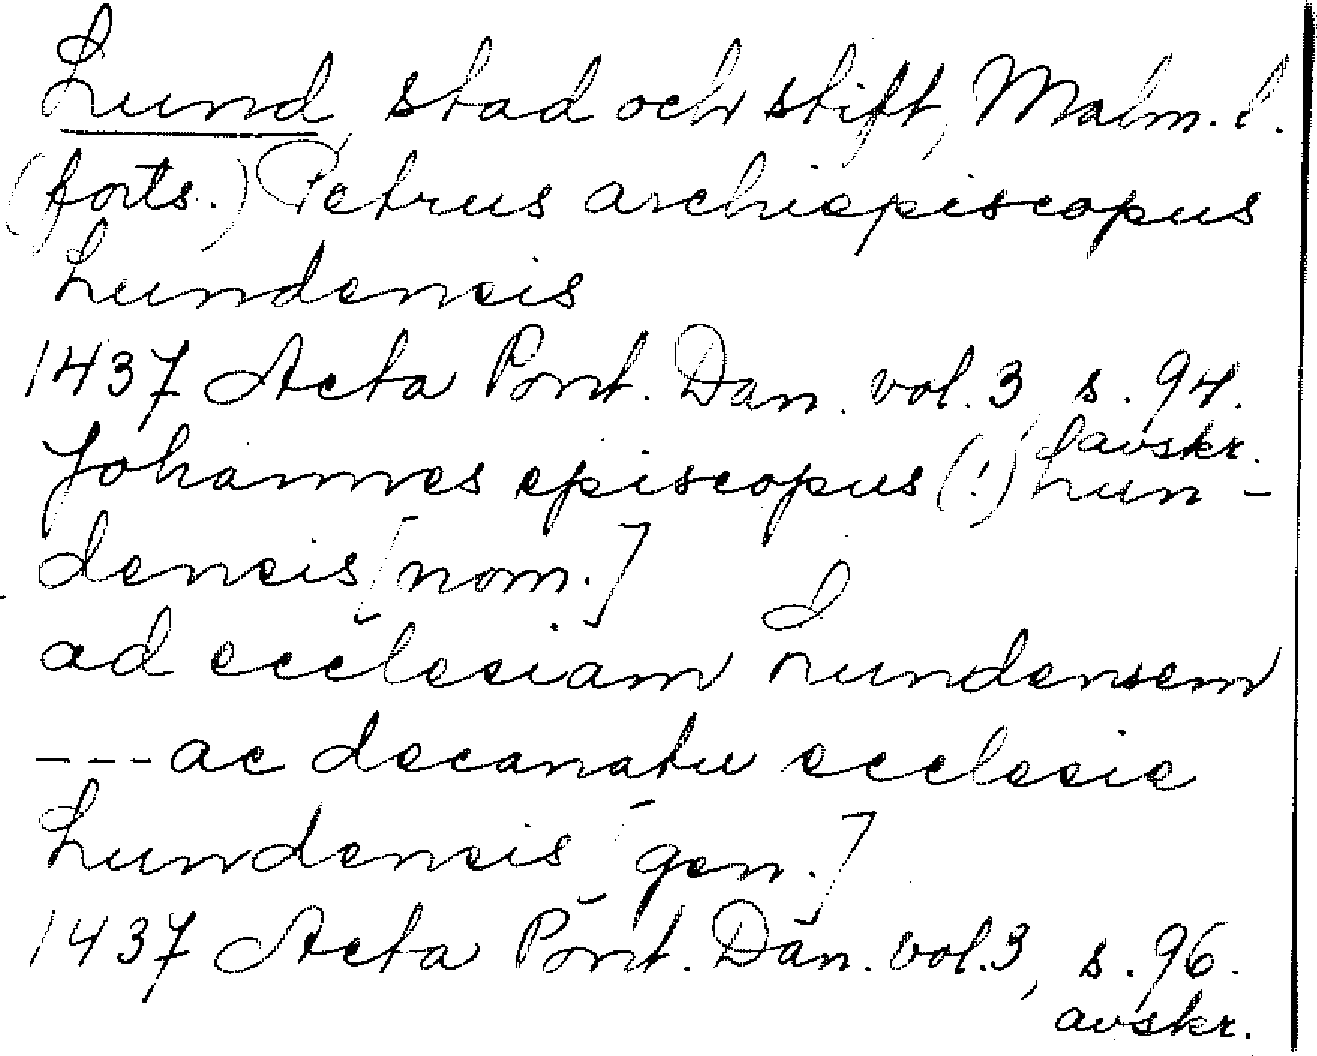 Lund, stad och stift, Malm. l.
(forts.) Petrus archiepiscopus
Lundensis
1437 Acta Pont. Dan. vol. 3, s. 94.
avskr.
Johannes episcopus (!) Lun-
densis [nom.]
ad ecclesiam Lundensem
--- ac decanatu ecclesie
Lundensis [gen.]
1437 Acta Pont. Dan. vol. 3, s. 96.
avskr.